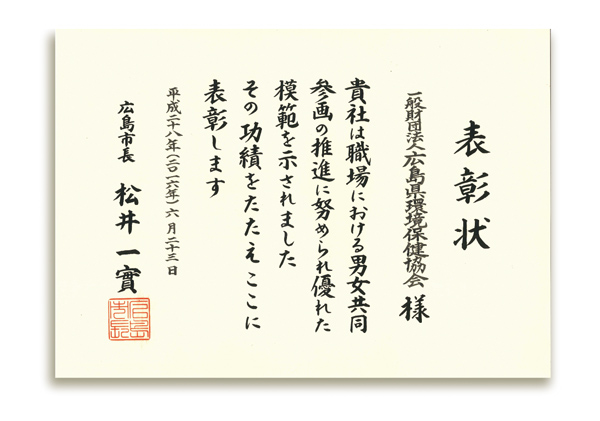 表彰状
一般財団法人広島県環境保健協会 様
貴社は職場における男女共同
参画の推進に努められ優れた
模範を示されました
その功績をたたえここに
表彰します
平成二十八年(二〇一六年)六月二十三日
広島市長 松井一實
広島市長